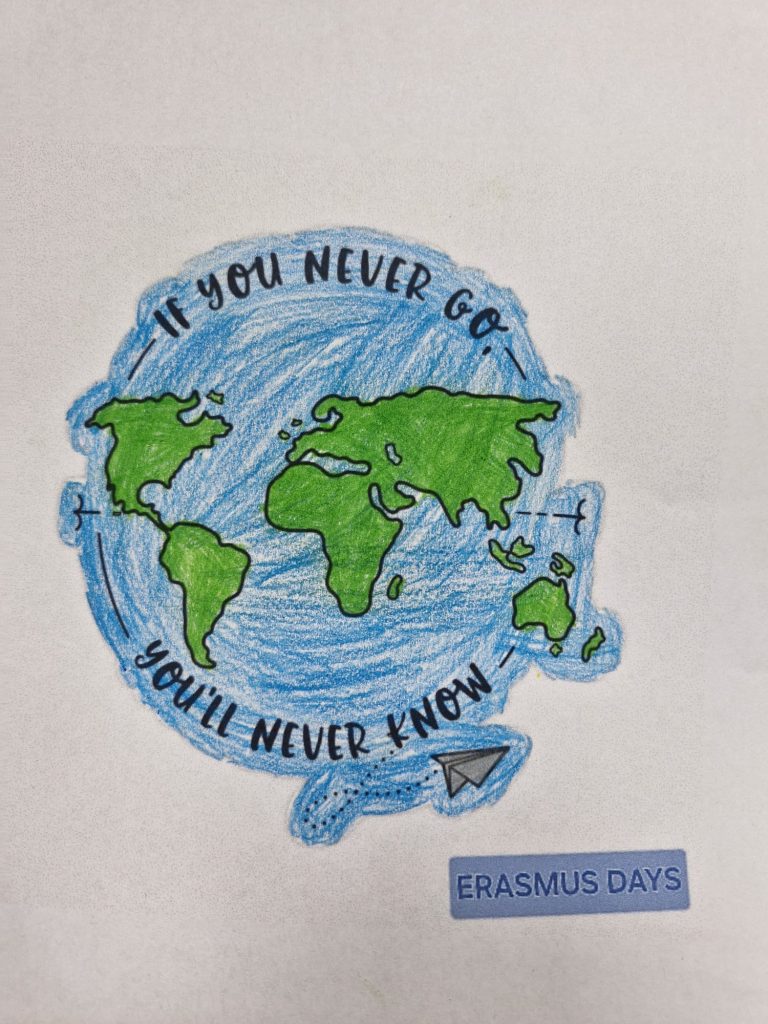 IF YOU NEVER GO,
YOU'LL NEVER KNOW
ERASMUS DAYS